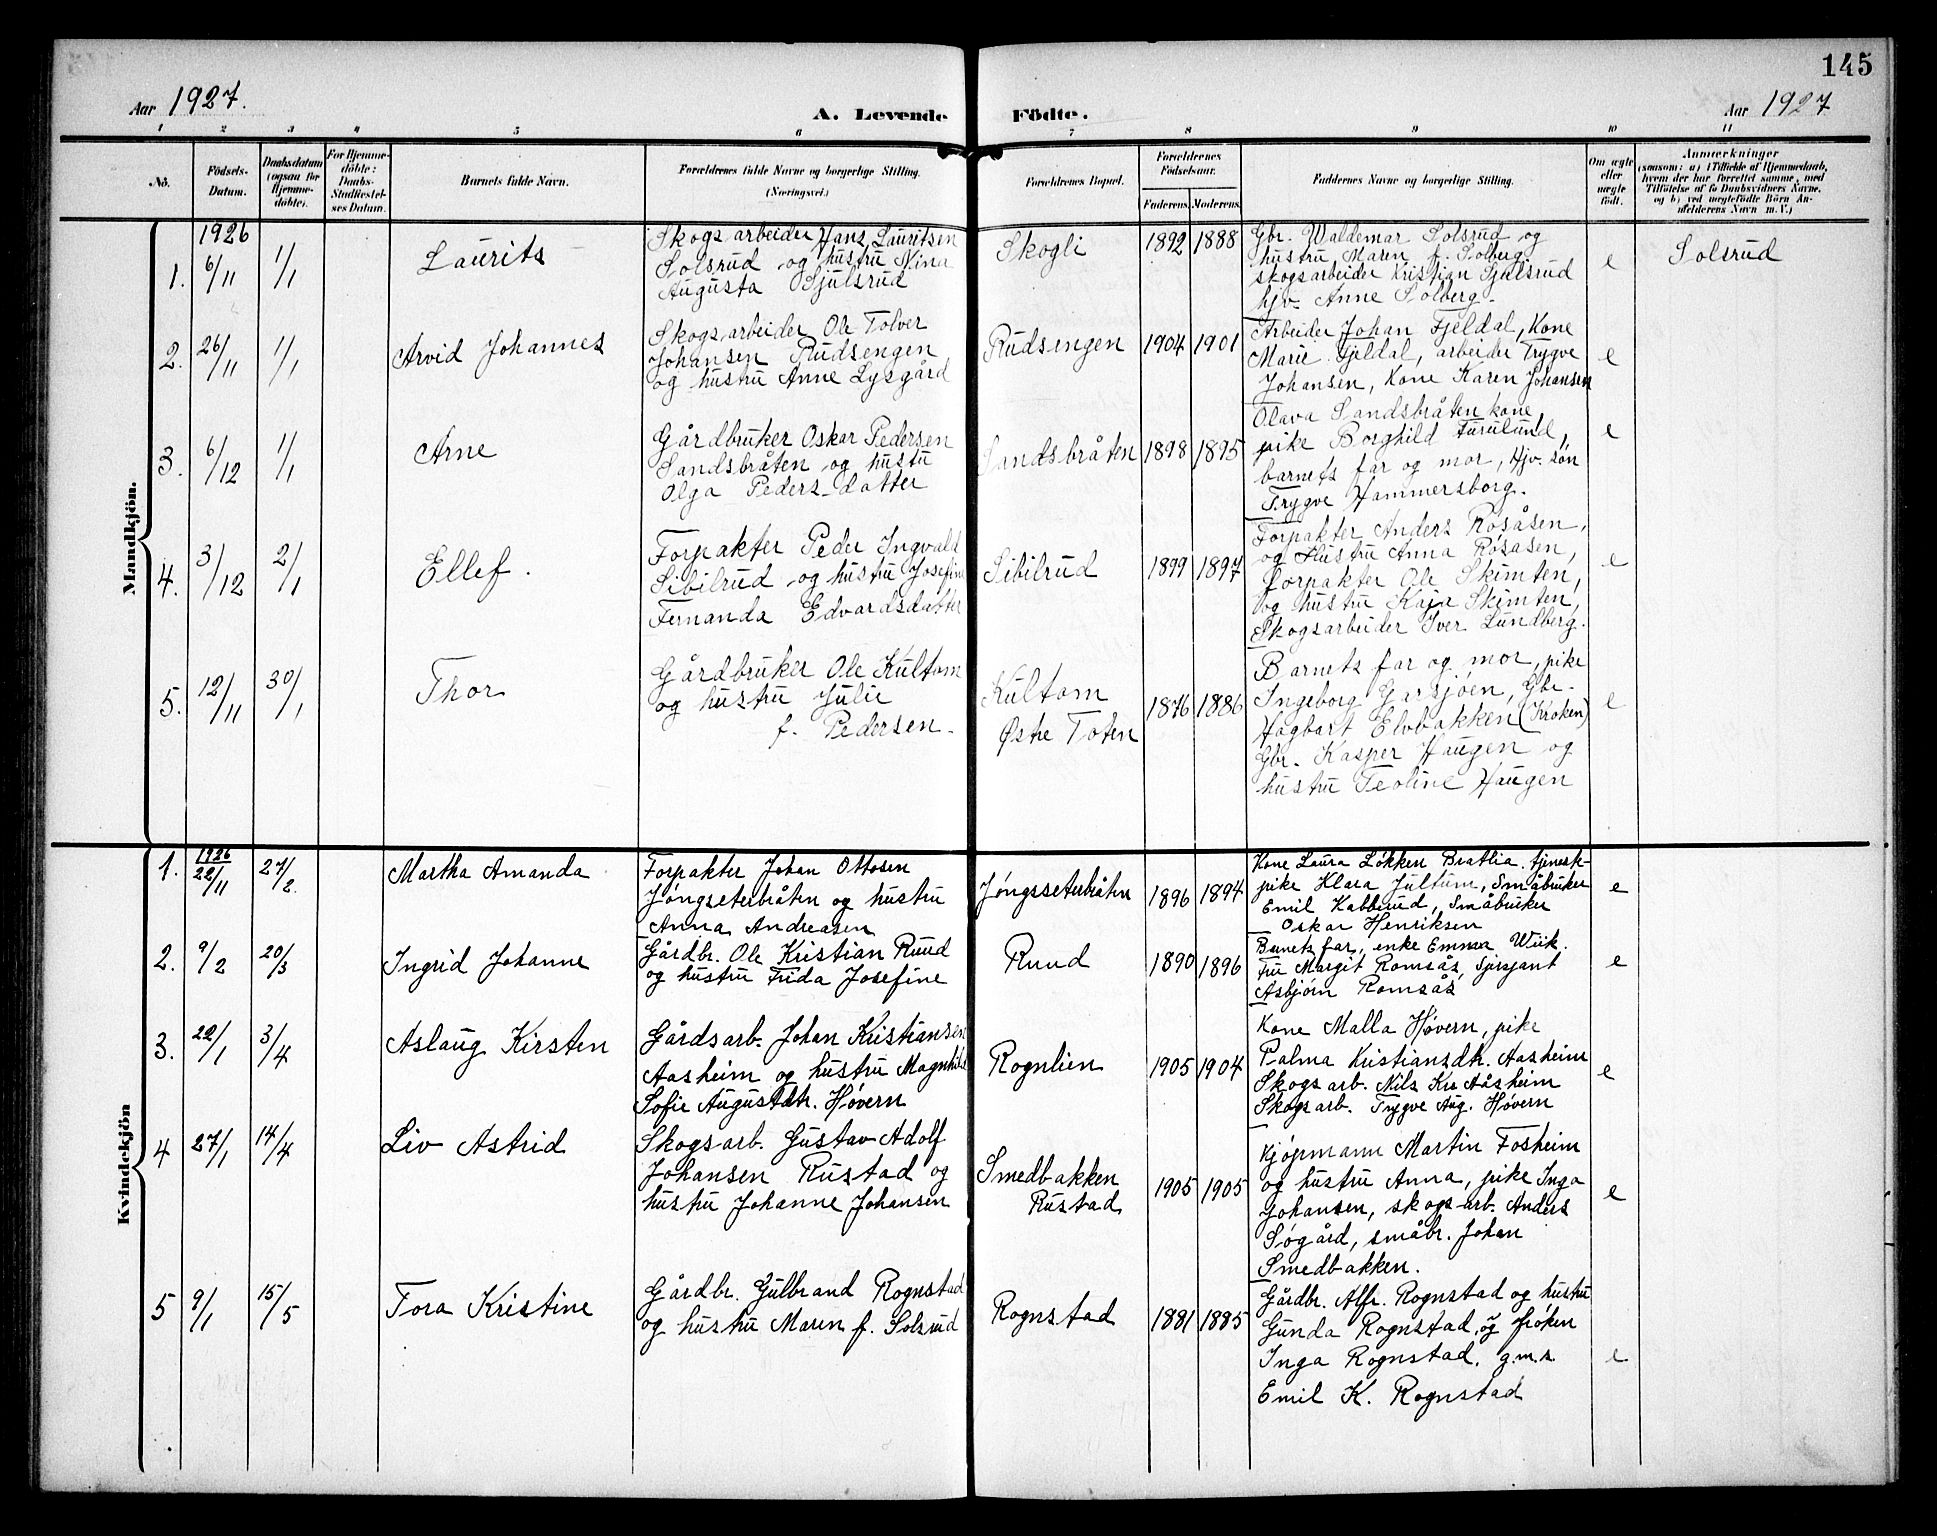 145
Aar 1927.
A. Levende Födte.
Aar 1927
1 2 3 4 5 6 7 8 9 10 11
No.
Födsels-
Datum.
Daabsdatum
(ogsaa for
Hjemme-
döbte).
For Hjemme-
döbte:
Daabs-
Stadfæstel-
ses Datum.
Barnets fulde Navn.
Forældrenes fulde Navne og borgerlige Stilling.
(Næringsvei.)
Forældrenes Bopæl.
Forældrenes
Födselsaar.
Faderens. Moderens.
Faddernes Navne og borgerlige Stilling.
Om ægte
eller
uægte
födt.
Anmærkninger
(saasom: a) i Tilfælde af Hjemmedaab,
hvem der har forrettet samme, med
Tilföielse af to Daabsvidners Navne,
og b) ved uægtefödte Börn An-
melderens Navn m. V.)
Mandkjön.
1.
1926
6/11
1/1
Laurits
Skogsarbeider Hans Lauritsen
Solsrud og hustru Nina
Augusta Gjulsrud
Skogli
1892 1888
Gbr. Waldemar Solsrud og
hustru Maren f. Solberg.
skogsarbeider Kristian Gjulsrud
hjv. Anne Solberg.
e
Solsrud
2.
26/11
1/1
Arvid Johannes
Skogsarbeider Ole Tolver
Johansen Rudsengen
og hustru Anne Lysgård
Rudsengen
1904 1901
Arbeider Johan Fjeldal, Kone
Marie Fjeldal, arbeider Trygve
Johansen, Kone Karen Johansen
e
3.
6/12
1/1
Arne
Gårdbruker Oskar Pedersen
Sandsbråten og hustru
Olga Peders-datter
Sandsbråten
1898 1895
Olava Sandsbråten kone
pike Borghild Furulund,
barnets far og mor, Hjv. søn
Trygve Hammersborg.
e
4.
3/12
2/1
Ellef.
Forpakter Peder Ingvald
Sibilrud og hustru Josefine
Fernanda Edvardsdatter
Sibilrud
1899 1897
Forpakter Anders Røsåsen,
og Hustru Anna Røsåsen,
Forpakter Ole Skimten,
og hustru Kaja Skimten,
Skogsarbeider Iver Lundberg.
e
5.
12/11
30/1
Thor
Gårdbruker Ole Kultom
og hustru Julie
f. Pedersen.
Kultom
Østre Toten
1876 1886
Barnets far og mor, pike
Ingeborg Garsjøen, Gbr.
Hagbart Elvbakken (Kroken)
Gbr. Kasper Haugen og
hustru Teoline Haugen
e
Kvindekjön
1.
1926
22/11
27/2.
Martha Amanda
Forpakter Johan Ottosen
Jøngseterbråten og hustru
Anna Andreasen
Jøngsseterbråten
1896 1894
Kone Laura Løkken Bratlia. tjenest-
pike Klara Jultum, Småbruker
Emil Kabberud, Småbruker
Oskar Henriksen
e
2.
9/2
20/3
Ingrid Johanne
Gårdbr. Ole Kristian Ruud
og hustru Frida Josefine
Ruud
1890 1896
Barnets far, enke Emma Wiik.
Fru Margit Romsås, Sjersjant
Asbjørn Romsås
e
3.
22/1
3/4
Aslaug Kirsten
Gårdsarb. Johan Kristiansen
Aasheim og hustru Magnhild
Sofie Augustdtr. Høvern
Rognlien
1905 1904
Kone Malla Høvern, pike
Palma Kristiansdtr. Aasheim
Skogsarb. Nils Kr. Aasheim
Skogsarb. Trygve Aug. Høvern
e
4
27/1
14/4
Liv Astrid
Skogsarb. Gustav Adolf
Johansen Rustad og
hustru Johanne Johansen
Smedbakken
Rustad
1905 1905
Kjøpmann Martin Fosheim
og hustru Anna, pike Inga
Johansen, skogsarb. Anders
Søgård, småbr. Johan
Smedbakken.
e
5
9/1
15/5
Tora Kristine
Gårdbr. Gulbrand Rognstad
og hustru Maren f. Solsrud
Rognstad
1881 1885
Gårdbr. Alfr. Rognstad og hustru
Gunda Rognstad, og frøken
Inga Rognstad. g.m.s.
Emil K. Rognstad
e